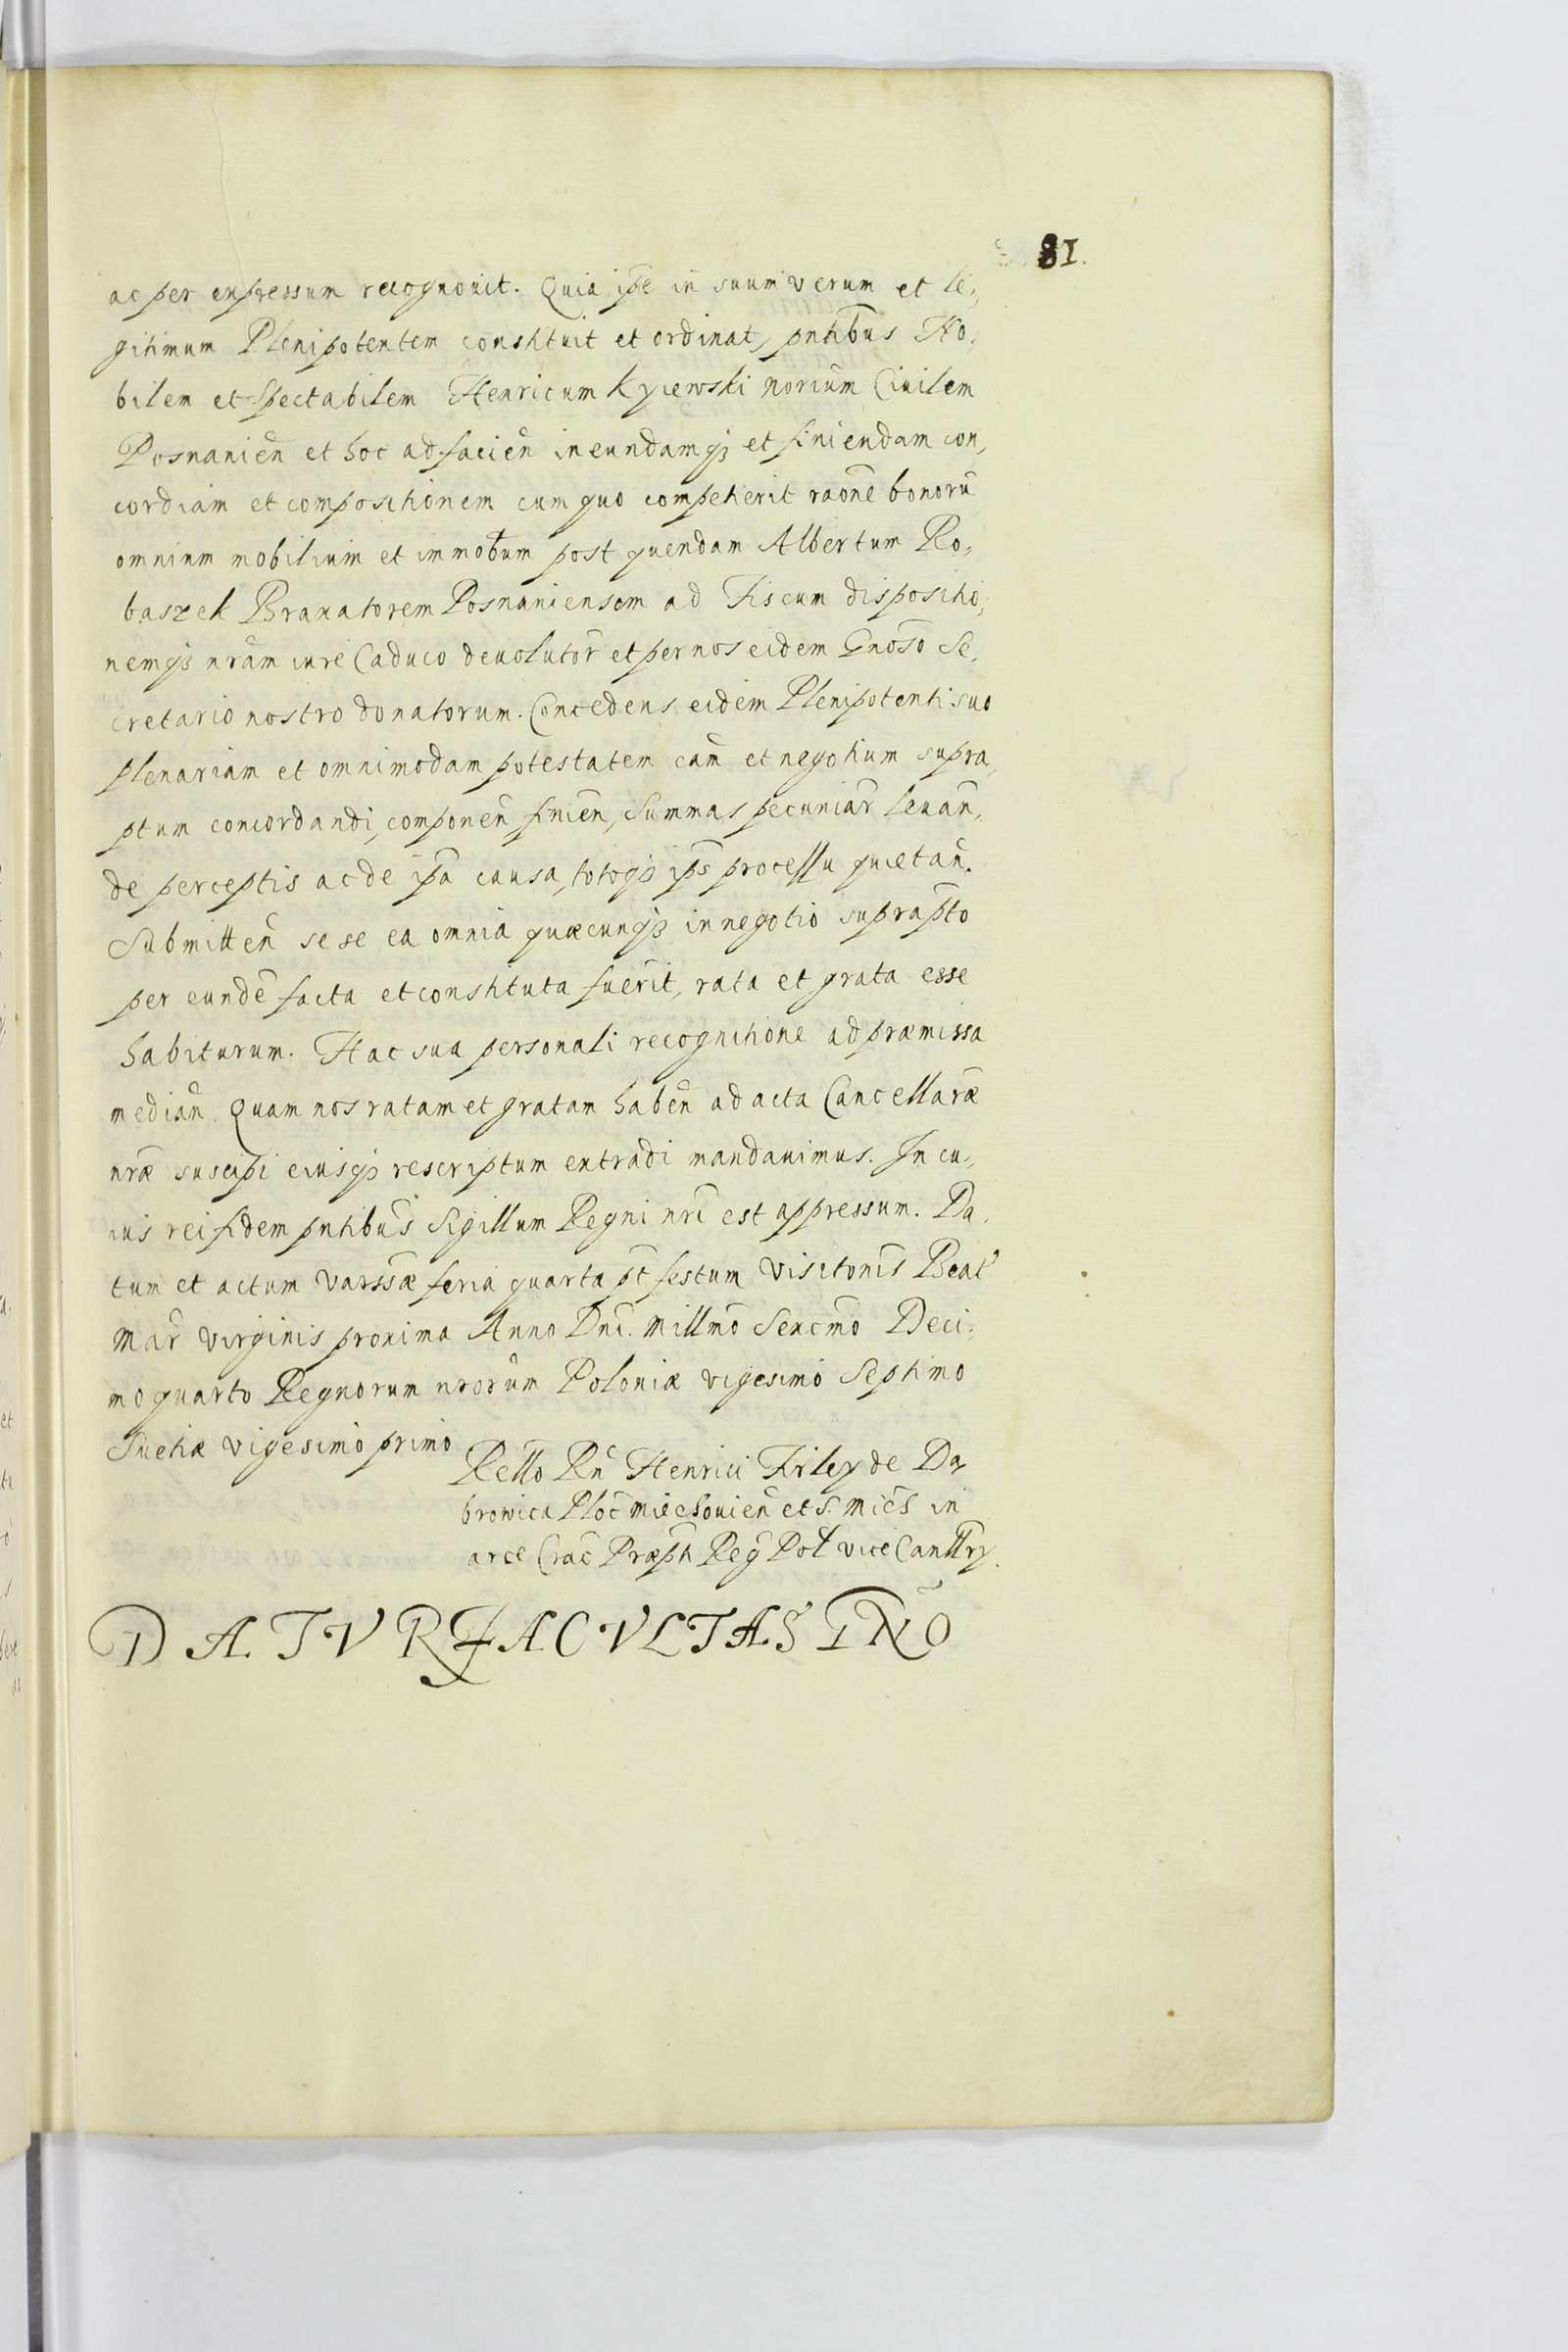 81.
ac per expressum recognouit. Quia ip̃e in suum verum et le,
gitimum Plenipotentem constituit et ordinat, pñtibus No,
bilem et Spectabilem Henricum Kyiewski noriũm Ciuilem
Posnanień et hoc ad facień ineundamq́ et finiendam con,
cordiam et compositionem cum quo competierit raõne bonorũ
omnium mobilium et immobum post quendam Albertum Ro,
baszek Braxatorem Posnaniensem ad Fiscum dispositio,
nemq́ nrãm iure Caduco deuolutor̃ et per nos eidem Gnoso Se,
cretario nostro donatorum. Concedens eidem Plenipotenti suo
plenariam et omnimodam potestatem eam̃ et negotium supra,
ptum concordandi, componeñ finień, Summas pecuniar̃ leuań,
de perceptis ac de ip̃a causa, totoq́ ip̃s processu quietań.
Submitteñ sese ea omnia quæcunq́ in negotio suprapto
per eundẽ facta et constituta fuerit, rata et grata esse
habiturum. Hac sua personali recognitione ad præmissa
mediań. Quam nos ratam et gratam habeñ ad acta Cancellaræ
nræ suscipi eiusq́ rescriptum extradi mandauimus. In cu,
ius rei fidem pñtibus Sigillum Regni nrĩ est appressum. Da,
tum et actum Varssæ feria quarta pt̃ festum Visitonis Beat̃
Mar̃ Virginis proxima Anno Dnĩ. Millmõ Sexcmõ Deci,
mo quarto Regnorum nrorum Poloniæ vigesimo Septimo
Suetiæ vigesimo primo
Rello Rñ Henrici Firley de Da,
browica Ploc̃ Miechouień et S. Mich̃ in
arce Crac̃ Præpti Reg̃ Pol̃ vice Canllry.
DATVR FACVLTAS GÑO